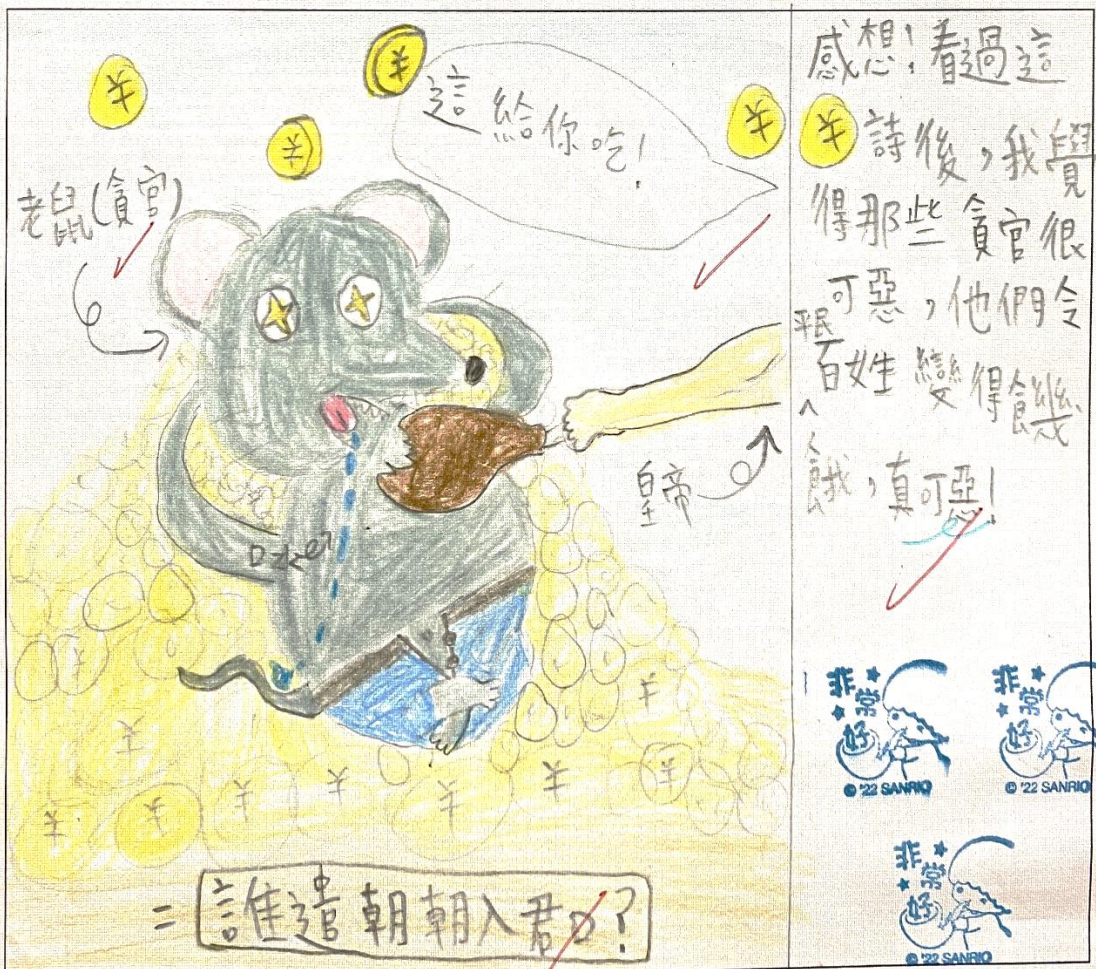 ¥
¥
¥
¥
這給你吃!
老鼠(貪官)
皇帝
¥
¥
¥
¥
¥
¥
¥
¥
¥
=誰遣朝朝入君口?
感想!看過這
¥
詩後,我覺
得那些貪官很
可惡,他們令
平民
百姓變得饑
餓,真可惡!
非常好
© '22 SANRIO
非常好
© '22 SANRIO
非常好
© '22 SANRIO